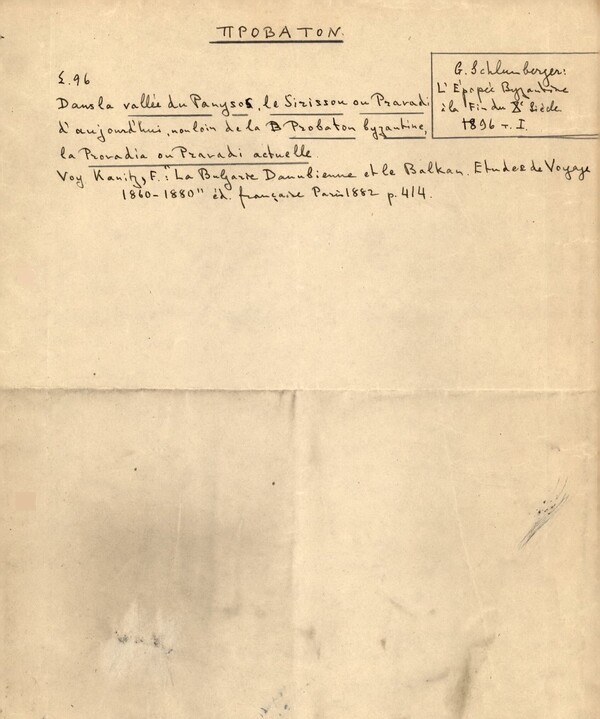 ΠΡΟΒΑΤΟΝ.
G. Schlumberger:
L'Épopée Byzantine
à la Fin du Xe Siècle.
1896 T. I.
Σ. 96
Dans la vallée du Panysos, le Sirissou ou Pravadi
d'aujourd'hui, non loin de la B Probaton byzantine,
la Provadia ou Pravadi actuelle.
Voy Kanitz, F. "La Bulgarie Danubienne et le Balkan. Etudes de Voyage
1860-1880" éd. française Paris 1882 p. 414.